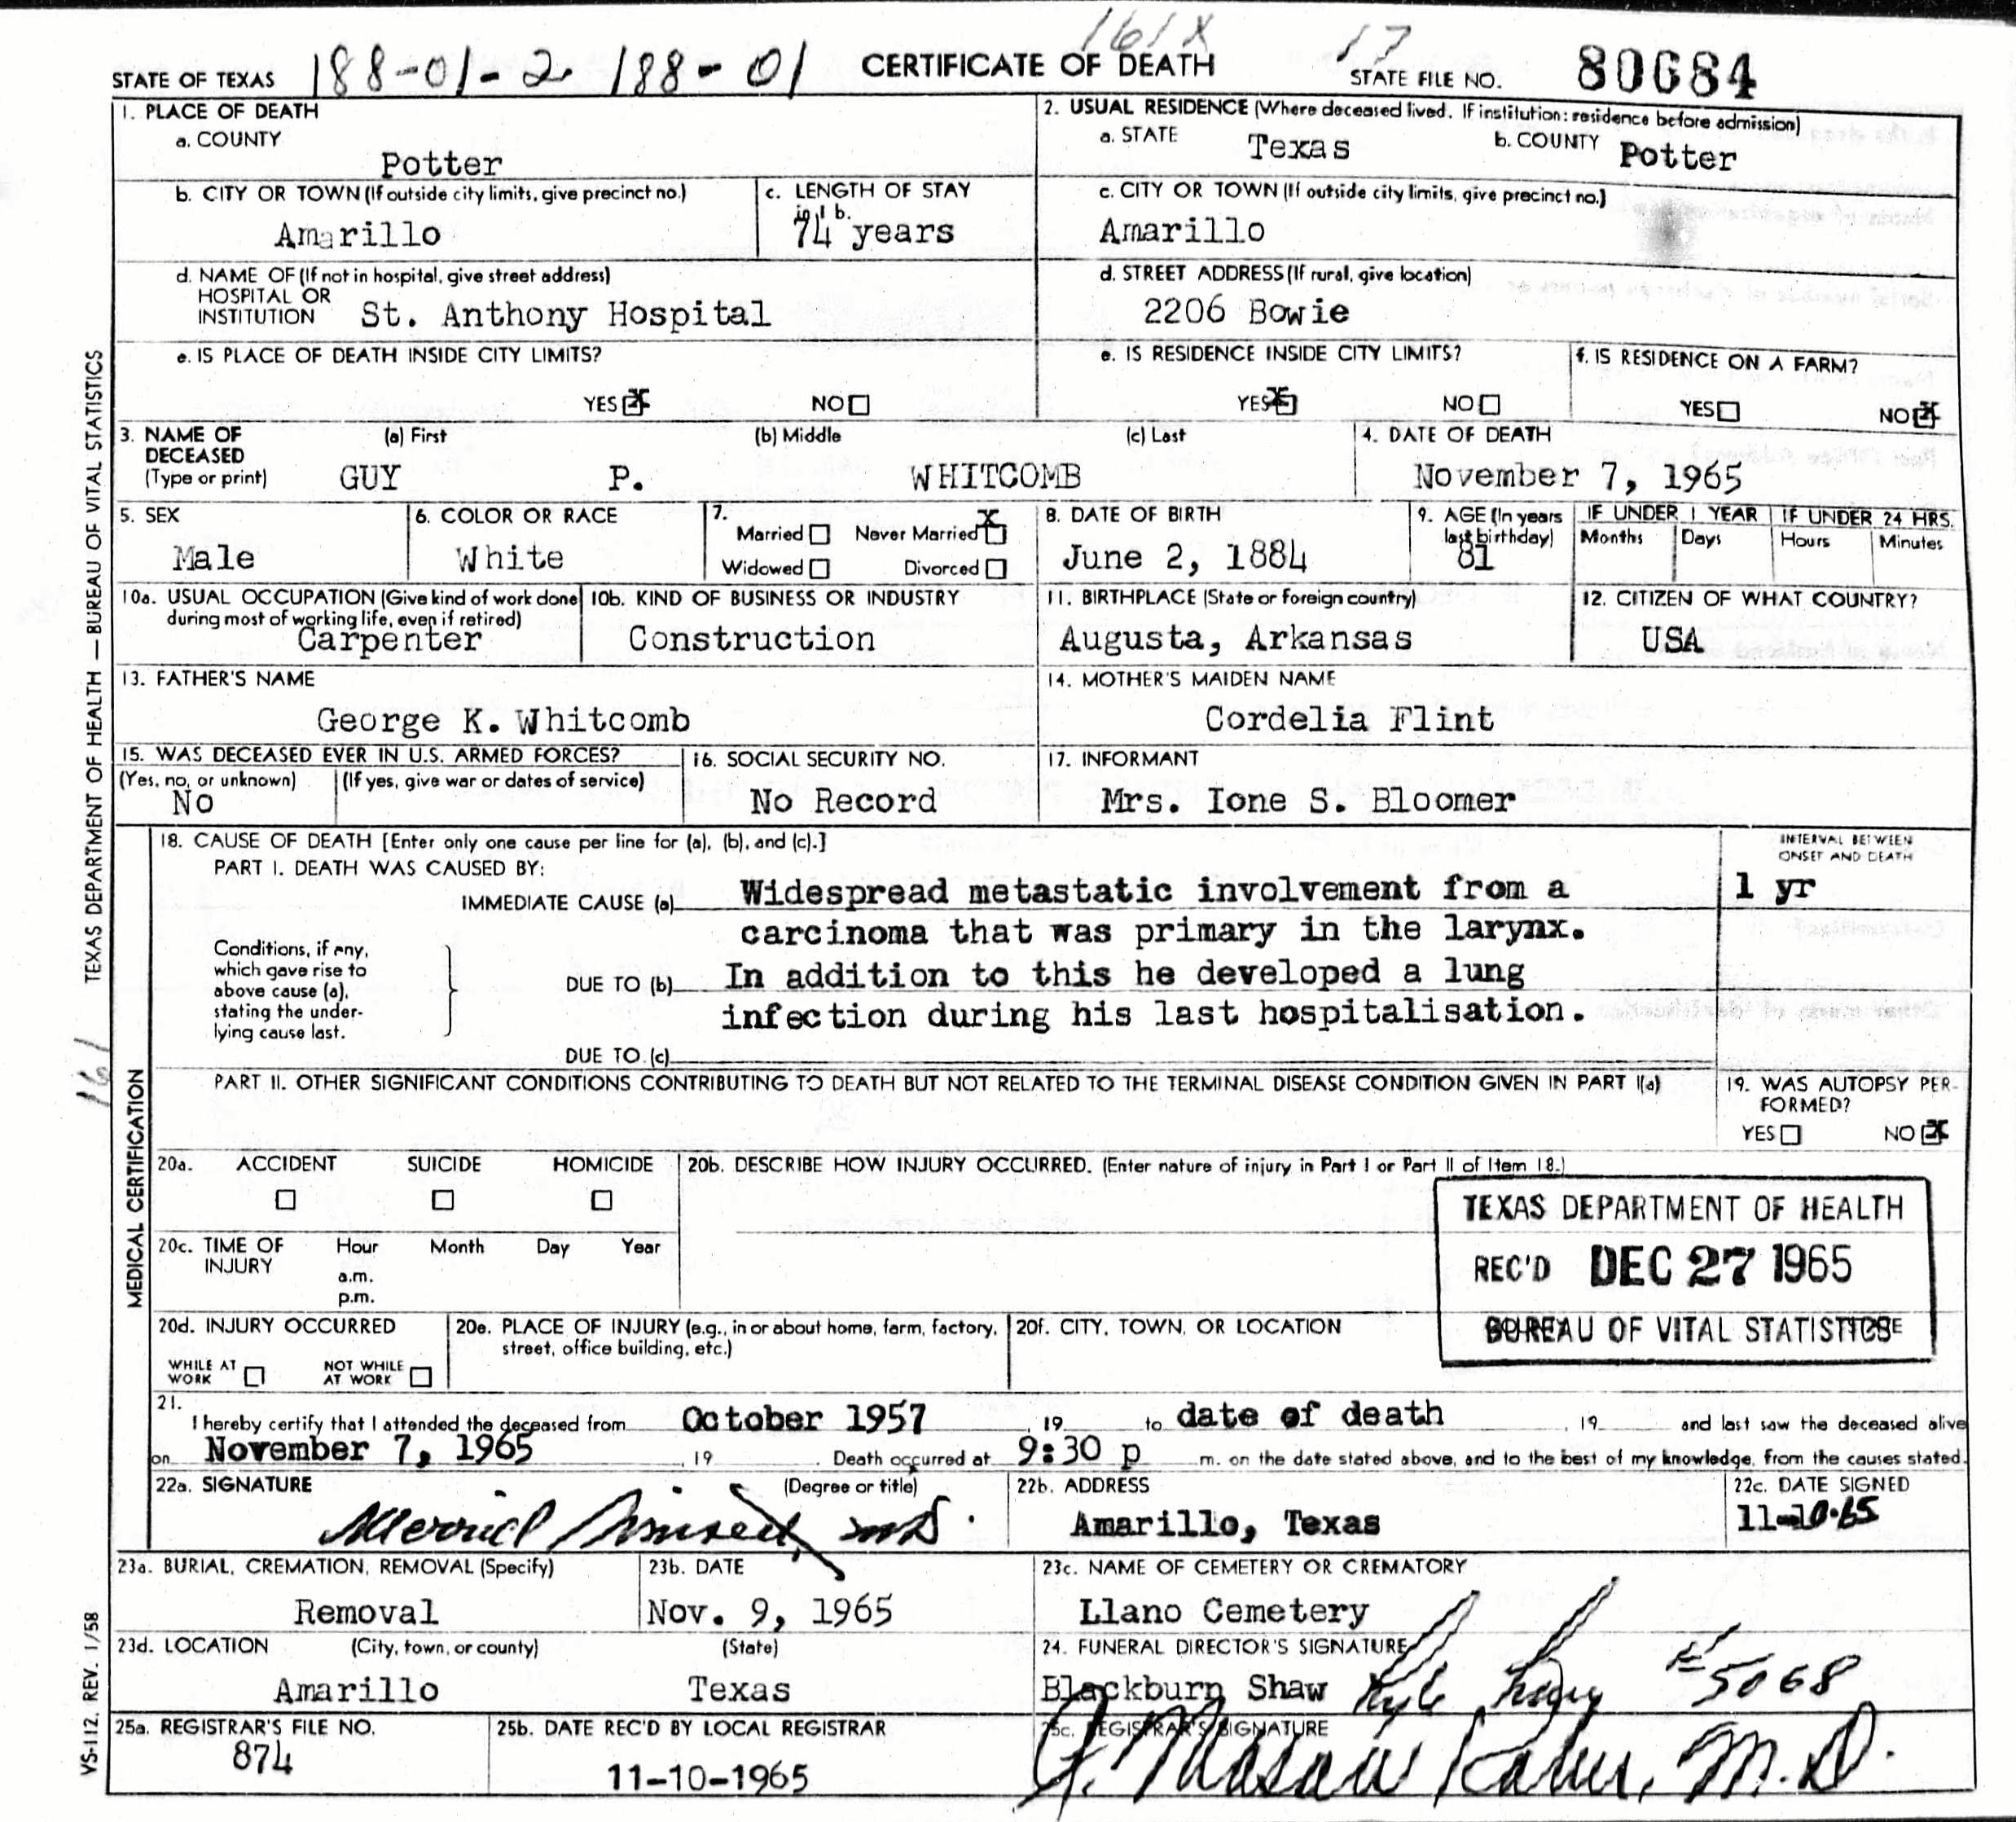 161X 17
STATE OF TEXAS 188-01-2 188-01 CERTIFICATE OF DEATH STATE FILE NO. 80684
1. PLACE OF DEATH
a. COUNTY
Potter
2. USUAL RESIDENCE (Where deceased lived. If institution: residence before admission)
a. STATE Texas b. COUNTY Potter
b. CITY OR TOWN (If outside city limits, give precinct no.)
Amarillo
c. LENGTH OF STAY
in 1 b.
74 years
c. CITY OR TOWN (If outside city limits, give precinct no.)
Amarillo
d. NAME OF (If not in hospital, give street address)
HOSPITAL OR
INSTITUTION St. Anthony Hospital
d. STREET ADDRESS (If rural, give location)
2206 Bowie
e. IS PLACE OF DEATH INSIDE CITY LIMITS?
YES X NO
e. IS RESIDENCE INSIDE CITY LIMITS?
YES X NO
f. IS RESIDENCE ON A FARM?
YES NO X
3. NAME OF
DECEASED
(Type or print)
(a) First (b) Middle (c) Last
GUY P. WHITCOMB
4. DATE OF DEATH
November 7, 1965
5. SEX
Male
6. COLOR OR RACE
White
7.
Married Never Married X
Widowed Divorced
8. DATE OF BIRTH
June 2, 1884
9. AGE (In years
last birthday)
81
IF UNDER 1 YEAR IF UNDER 24 HRS.
Months Days Hours Minutes
10a. USUAL OCCUPATION (Give kind of work done
during most of working life, even if retired)
Carpenter
10b. KIND OF BUSINESS OR INDUSTRY
Construction
11. BIRTHPLACE (State or foreign country)
Augusta, Arkansas
12. CITIZEN OF WHAT COUNTRY?
USA
13. FATHER'S NAME
George K. Whitcomb
14. MOTHER'S MAIDEN NAME
Cordelia Flint
15. WAS DECEASED EVER IN U.S. ARMED FORCES?
(Yes, no, or unknown) (If yes, give war or dates of service)
No
16. SOCIAL SECURITY NO.
No Record
17. INFORMANT
Mrs. Ione S. Bloomer
18. CAUSE OF DEATH [Enter only one cause per line for (a), (b), and (c).]
INTERVAL BETWEEN
ONSET AND DEATH
PART I. DEATH WAS CAUSED BY:
IMMEDIATE CAUSE (a) Widespread metastatic involvement from a 1 yr
carcinoma that was primary in the larynx.
Conditions, if any,
which gave rise to
above cause (a),
stating the under-
lying cause last.
DUE TO (b) In addition to this he developed a lung
infection during his last hospitalisation.
DUE TO (c)
PART II. OTHER SIGNIFICANT CONDITIONS CONTRIBUTING TO DEATH BUT NOT RELATED TO THE TERMINAL DISEASE CONDITION GIVEN IN PART I(a)
19. WAS AUTOPSY PER-
FORMED?
YES NO X
20a. ACCIDENT SUICIDE HOMICIDE
20b. DESCRIBE HOW INJURY OCCURRED. (Enter nature of injury in Part I or Part II of Item 18.)
20c. TIME OF
INJURY
Hour Month Day Year
a.m.
p.m.
TEXAS DEPARTMENT OF HEALTH
REC'D DEC 27 1965
BUREAU OF VITAL STATISTICS
20d. INJURY OCCURRED
WHILE AT
WORK
NOT WHILE
AT WORK
20e. PLACE OF INJURY (e.g., in or about home, farm, factory,
street, office building, etc.)
20f. CITY, TOWN, OR LOCATION
21.
I hereby certify that I attended the deceased from October 1957, 19 to date of death, 19 and last saw the deceased alive
on November 7, 1965, 19 . Death occurred at 9:30 p m. on the date stated above, and to the best of my knowledge, from the causes stated.
22a. SIGNATURE (Degree or title)
M.D.
22b. ADDRESS
Amarillo, Texas
22c. DATE SIGNED
11-10-65
23a. BURIAL, CREMATION, REMOVAL (Specify)
Removal
23b. DATE
Nov. 9, 1965
23c. NAME OF CEMETERY OR CREMATORY
Llano Cemetery
23d. LOCATION (City, town, or county) (State)
Amarillo Texas
24. FUNERAL DIRECTOR'S SIGNATURE
Blackburn Shaw Kyle #5068
25a. REGISTRAR'S FILE NO.
874
25b. DATE REC'D BY LOCAL REGISTRAR
11-10-1965
25c. REGISTRAR'S SIGNATURE
M.D.
TEXAS DEPARTMENT OF HEALTH — BUREAU OF VITAL STATISTICS
161
MEDICAL CERTIFICATION
VS-112. REV. 1/58